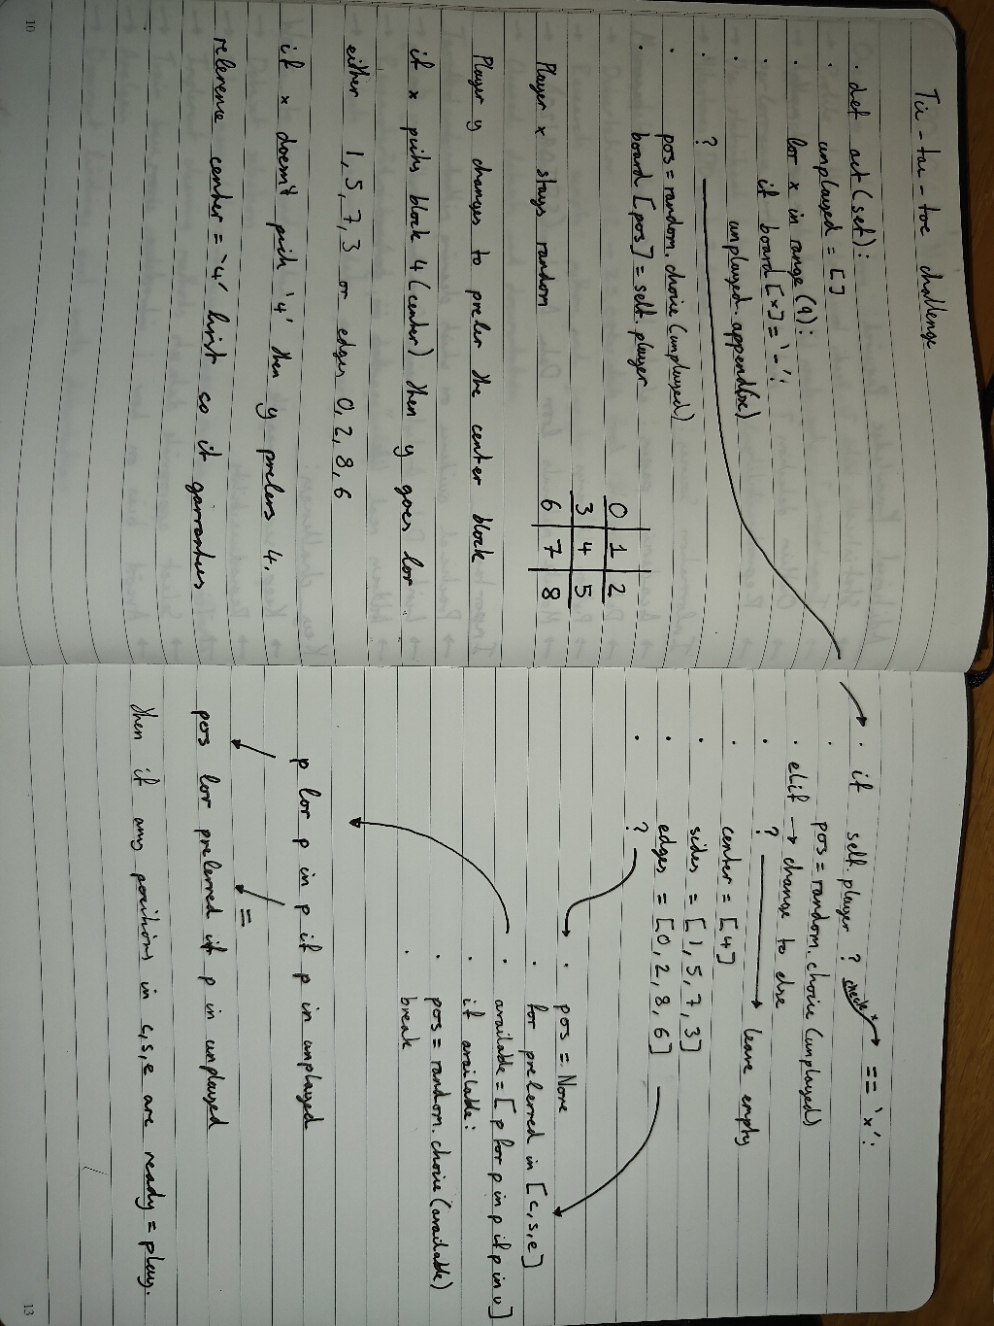 Tic-tac-toe challenge
· def act(self):
· unplayed = []
· for x in range(9):
· if board[x]='-':
· unplayed.append(x)
· ?
· pos = random.choice(unplayed)
· board[pos] = self.player
0 1 2
3 4 5
6 7 8
Player x stays random
Player y changes to prefer the center block
if x picks block 4 (center) then y goes for
either 1, 5, 7, 3 or edges 0, 2, 8, 6
if x doesn't pick '4' then y prefers 4.
reference center = '4' first so it garrantees
· if self.player ? check x == 'x':
· pos = random.choice(unplayed)
· elif → change to else
· ? → leave empty
· center = [4]
· sides = [1, 5, 7, 3]
· edges = [0, 2, 8, 6]
· ?
· pos = None
· for preferred in [c,s,e]
· available = [p for p in p if p in u]
· if available:
· pos = random.choice(available)
· break
p for p in p if p in unplayed
=
pos for preferred if p in unplayed
then if any positions in c,s,e are ready = play.
10
13